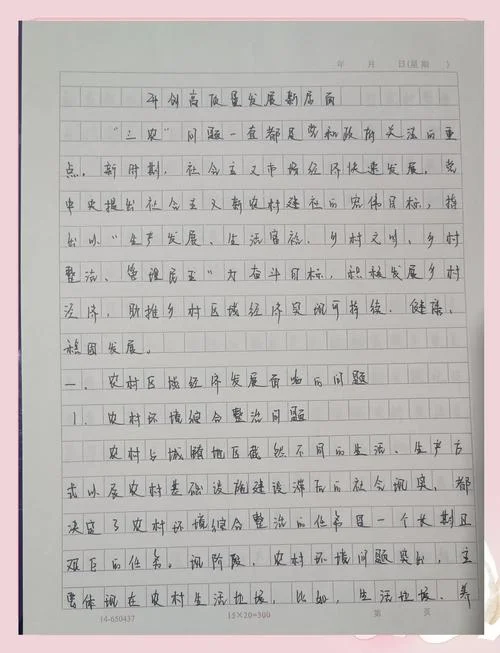 年 月 日(星期 )
开创高质量发展新局面
“三农”问题一直都是党和政府关注的重
点。新时期，社会主义市场经济快速发展，党
中央提出社会主义新农村建社的宏伟目标，指
出以“生产发展、生活富裕、乡村文明、乡村
整洁、管理民主”为奋斗目标，积极发展乡村
经济，助推乡村区域经济实现可持续、健康、
稳固发展。
一．农村区域经济发展面临的问题
1．农村环境综合整治问题
农村与城镇地区截然不同的生活、生产方
式以及农村基础设施建设滞后的社会现实，都
决定了农村环境综合整治的任务是一个长期且
艰巨的任务。现阶段，农村环境问题突出，主
要体现在农村生活垃圾，比如，生活垃圾、养
14-650437 15×20=300 第 页